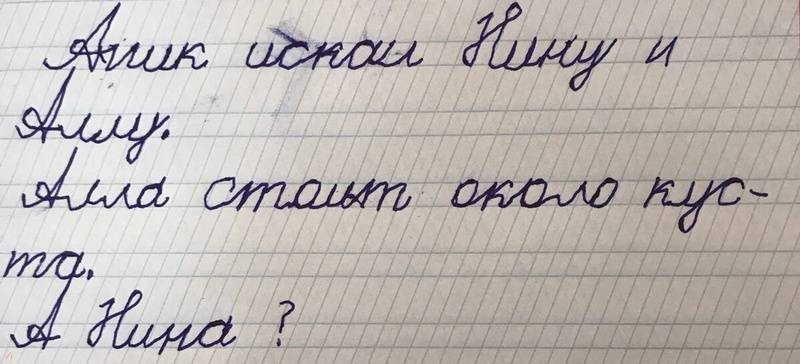 Алик искал Нину и
Аллу.
Алла стоит около кус-
та.
А Нина ?